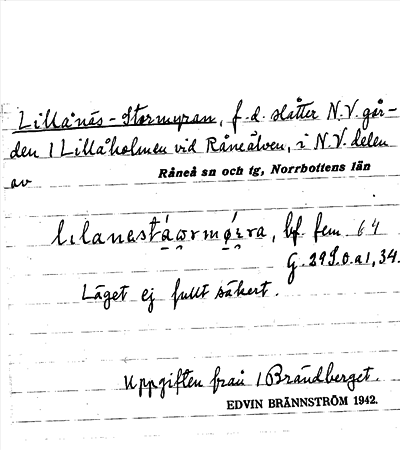 Lillånäs-Stormyran, f.d. slåtter N.V. går-
den 1 Lillåholmen vid Råneälven, i N.V. delen
av Råneå sn och tg, Norrbottens län
bf. fem 64
G. 29 S.o.a1, 34.
Läget ej fullt säkert.
Uppgiften från 1 Brändberget.
EDVIN BRÄNNSTRÖM 1942.